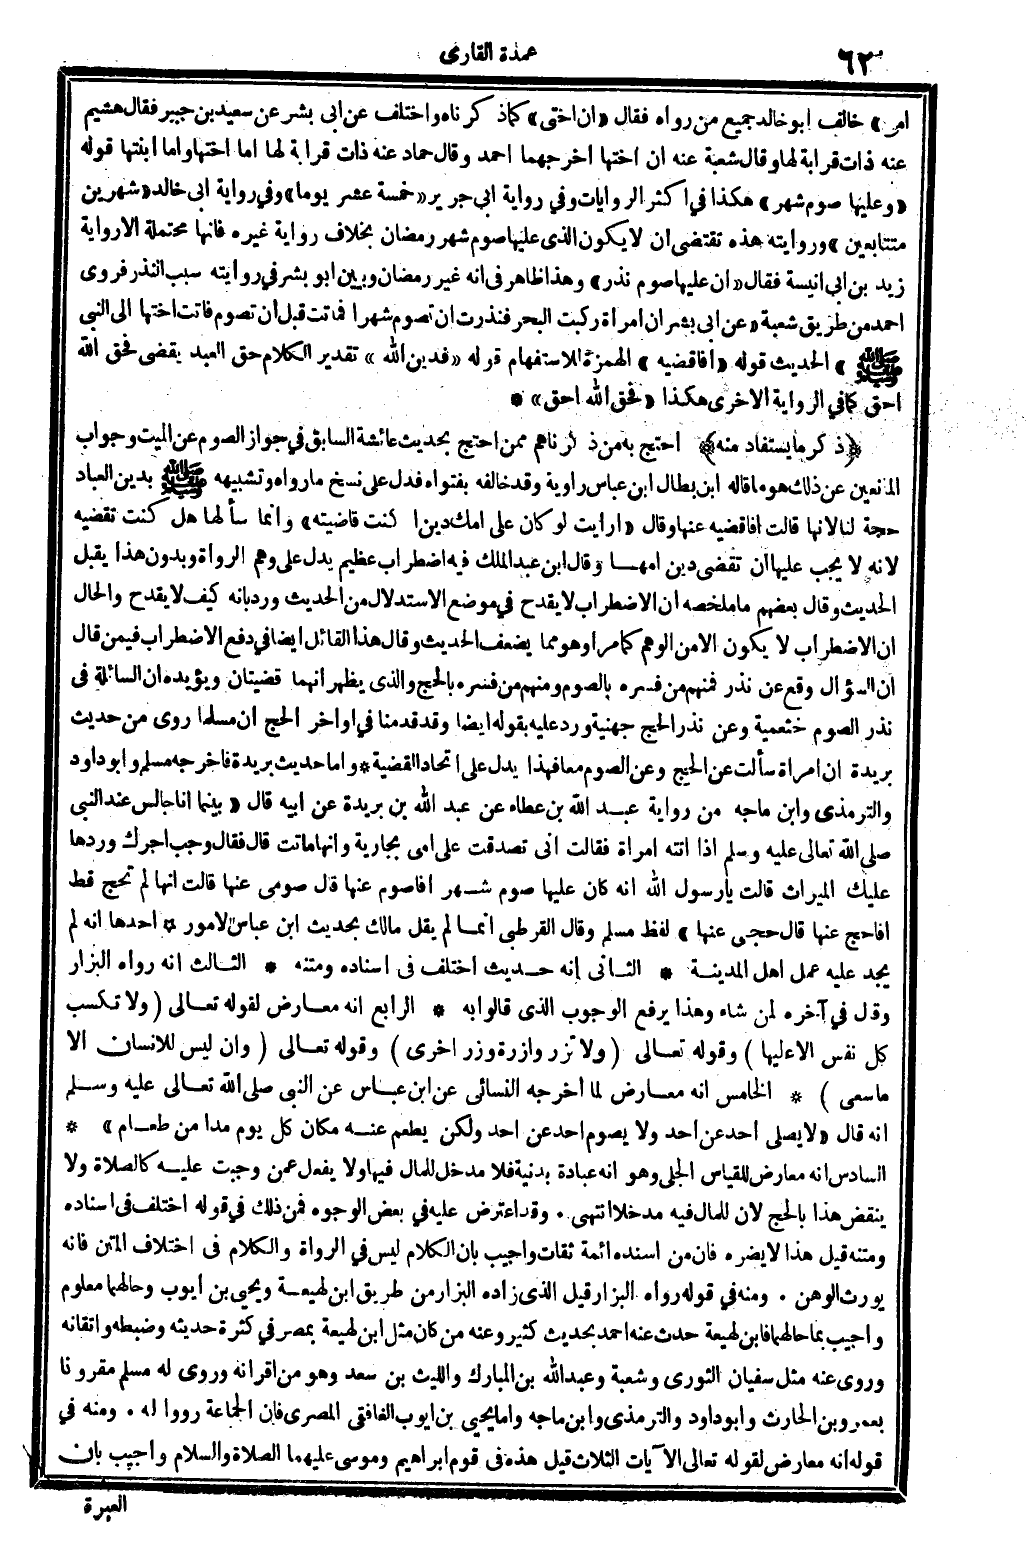 ٦٢
عمدة القارى
امى» خالف ابو خالد جميع من رواه فقال «ان اختى» كما ذكرناه واختلف عن ابى بشر عن سعيد بن جبير فقال هشيم
عنه ذات قرابة لها وقال شعبة عنه ان اختها اخرجهما احمد وقال حماد عنه ذات قرابة لها اما اختها واما ابنتها قوله
«وعليها صوم شهر» هكذا في اكثر الروايات وفي رواية ابى حرير «خمسة عشر يوما» وفي رواية ابى خالد «شهرين
متتابعين» وروايته هذه تقتضى ان لا يكون الذى عليها صوم شهر رمضان بخلاف رواية غيره فانها محتملة الا رواية
زيد بن ابى انيسة فقال «ان عليها صوم نذر» وهذا ظاهر فى انه غير رمضان وبين ابو بشر في روايته سبب النذر فروى
احمد من طريق شعبة «عن ابى بشر ان امرأة ركبت البحر فنذرت ان تصوم شهرا فماتت قبل أن تصوم فاتت اختها الى النبى
ﷺ» الحديث قوله «أفاقضيه» الهمزة للاستفهام قوله «فدين الله» تقدير الكلام حق العبد يقضى فحق الله
احق كما في الرواية الاخرى هكذا «فحق الله احق» *
﴿ذكر ما يستفاد منه﴾ احتج به من ذكرناهم ممن احتج بحديث عائشة السابق في جواز الصوم عن الميت وجواب
المانعين عن ذلك هو ما قاله ابن بطال ابن عباس راوية وقد خالفه بفتواه فدل على نسخ مارواه وتشبيهه ﷺ بدين العباد
حجة لنا لانها قالت افاقضيه عنها وقال «ارأيت لو كان على امك دين اكنت قاضيته» وانما سألها هل كنت تقضيه
لانه لا يجب عليها أن تقضى دين امها وقال ابن عبد الملك فيه اضطراب عظيم يدل على وهم الرواة وبدون هذا يقبل
الحديث وقال بعضهم ما ملخصه أن الاضطراب لا يقدح في موضع الاستدلال من الحديث ورد بانه كيف لا يقدح والحال
ان الاضطراب لا يكون الا من الوهم كما مر وهو مما يضعف الحديث وقال هذا القائل ايضا في دفع الاضطراب فيمن قال
ان السؤال وقع عن نذر فمنهم من فسره بالصوم ومنهم من فسره بالحج والذى يظهر انهما قضيتان ويؤيده ان السائلة فى
نذر الصوم خثعمية وعن نذر الحج جهنية ورد عليه بقوله ايضا وقد قدمنا في اواخر الحج ان مسلما روى من حديث
بريدة ان امرأة سألت عن الحج وعن الصوم معا فهذا يدل على اتحاد القضية * واما حديث بريدة فاخرجه مسلم وابو داود
والترمذى وابن ماجه من رواية عبد الله بن عطاء عن عبد الله بن بريدة عن ابيه قال «بينما انا جالس عند النبى
صلى الله تعالى عليه وسلم اذا اتته امرأة فقالت انى تصدقت على امى بجارية وانها ماتت قال فقال وجب اجرك وردها
عليك الميراث قالت يارسول الله انه كان عليها صوم شهر افاصوم عنها قال صومى عنها قالت انها لم تحج قط
افاحج عنها قال حجى عنها» لفظ مسلم وقال القرطبى انما لم يقل مالك بحديث ابن عباس لامور * احدها انه لم
يجد عليه عمل اهل المدينة * الثانى إنه حديث اختلف فى اسناده ومتنه * الثالث انه رواه البزار
وقال في آخره لمن شاء وهذا يرفع الوجوب الذى قالوا به * الرابع انه معارض لقوله تعالى (ولا تكسب
كل نفس الا عليها) وقوله تعالى (ولا تزر وازرة وزر اخرى) وقوله تعالى (وان ليس للانسان الا
ما سعى) * الخامس انه معارض لما أخرجه النسائى عن ابن عباس عن النبى صلى الله تعالى عليه وسلم
انه قال «لا يصلى احد عن أحد ولا يصوم احد عن احد ولكن يطعم عنه مكان كل يوم مدا من طعام» *
السادس انه معارض للقياس الجلى وهو انه عبادة بدنية فلا مدخل للمال فيها ولا يفعل عمن وجبت عليه كالصلاة ولا
ينقض هذا بالحج لان للمال فيه مدخلا انتهى . وقد اعترض عليه في بعض الوجوه فمن ذلك في قوله اختلف فى اسناده
ومتنه قيل هذا لا يضره فان من اسنده ائمة ثقات واجيب بان الكلام ليس في الرواة والكلام فى اختلاف المتن فانه
يورث الوهن . ومنه في قوله رواه البزار قيل الذى زاده البزار من طريق ابن لهيعة ويحيى بن أيوب وحالهما معلوم
واجيب بما حالهما فابن لهيعة حدث عنه احمد بحديث كثير وعنه من كان مثل ابن لهيعة بمصر في كثرة حديثه وضبطه واتقانه
وروى عنه مثل سفيان الثورى وشعبة وعبد الله بن المبارك والليث بن سعد وهو من اقرانه وروى له مسلم مقرونا
بعمرو بن الحارث وابو داود والترمذى وابن ماجه واما يحيى بن ايوب الغافقى المصرى فان الجماعة رووا له . ومنه في
قوله انه معارض لقوله تعالى الآيات الثلاث قيل هذه فى قوم ابراهيم وموسى عليهما الصلاة والسلام واجيب بان
العبرة